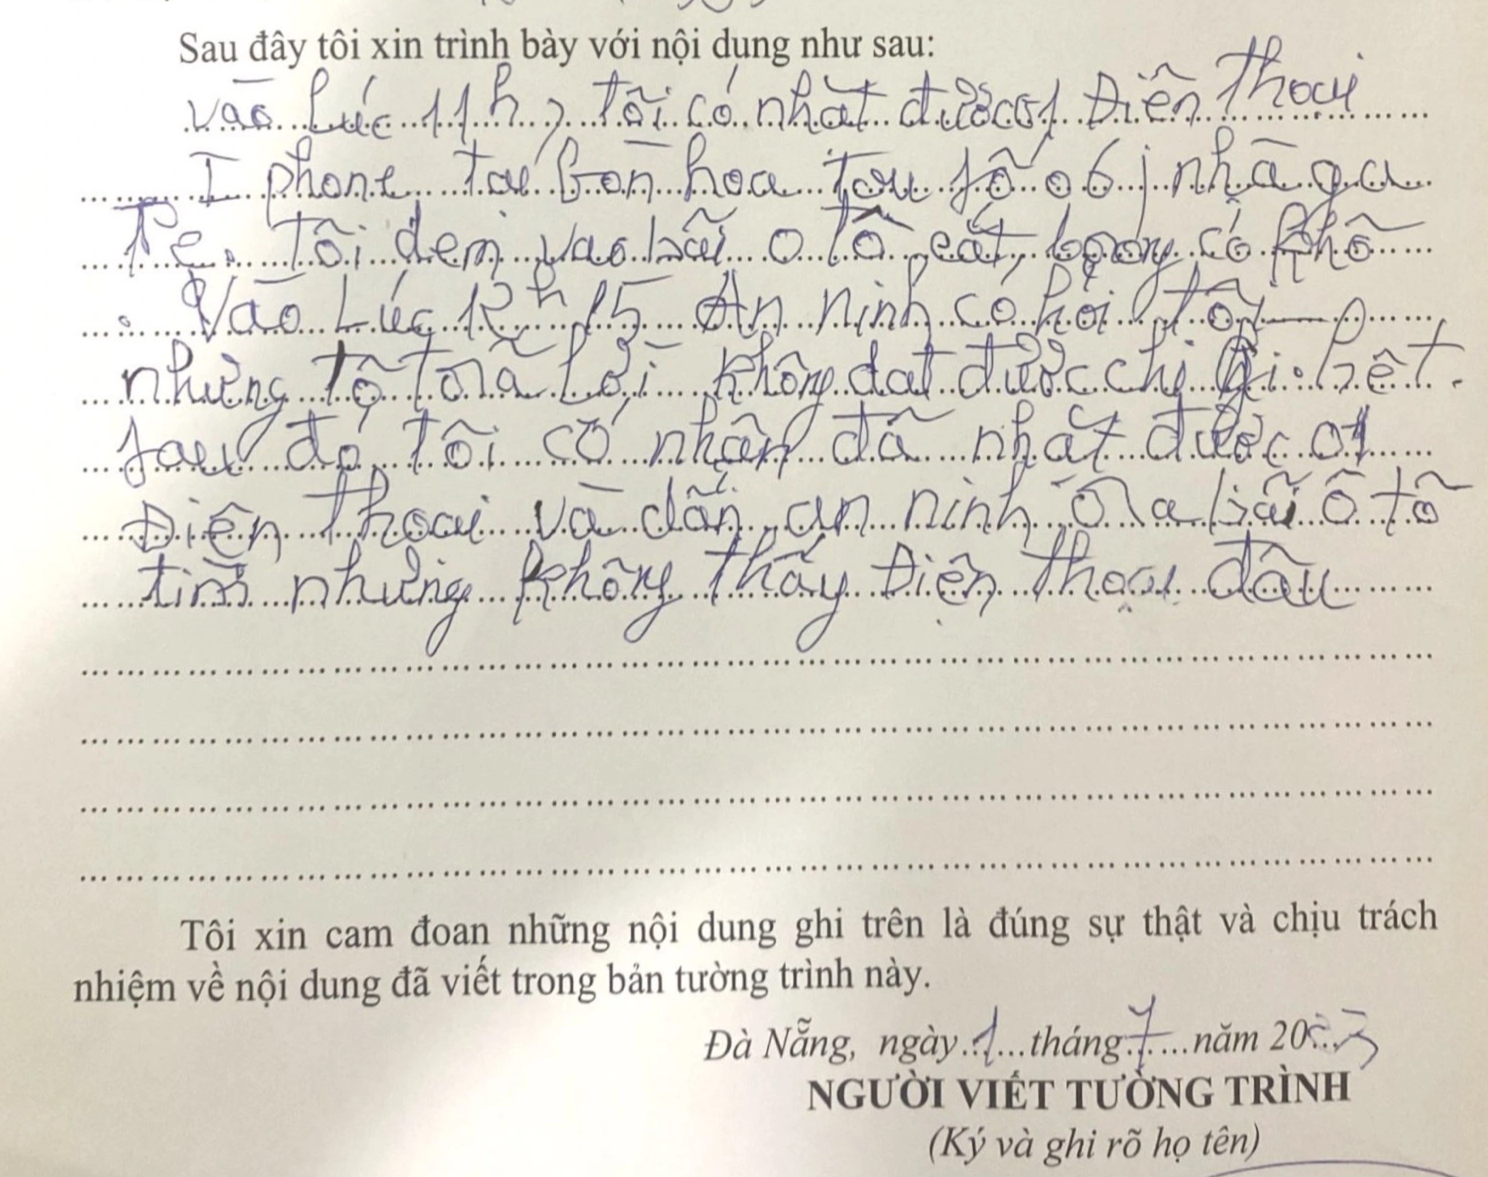 Sau đây tôi xin trình bày với nội dung như sau:
vào lúc 11h, tôi có nhặt được 01 Điện thoại
I phone tại bồn hoa tại số 06, nhà ga
Tê, tôi đem vào bãi ô tô cất,
Vào Lúc 12h 15 An ninh có hỏi tôi
nhưng tô tôla Lời không dat được chi gi hết.
sau đó, tôi có nhận đã nhặt được 01
Điện thoại và dẫn an ninh ôla bãi ô tô
tìm nhưng không thấy Điện thoại đâu
Tôi xin cam đoan những nội dung ghi trên là đúng sự thật và chịu trách
nhiệm về nội dung đã viết trong bản tường trình này.
Đà Nẵng, ngày 1 tháng 7 năm 2023
NGƯỜI VIẾT TƯỜNG TRÌNH
(Ký và ghi rõ họ tên)